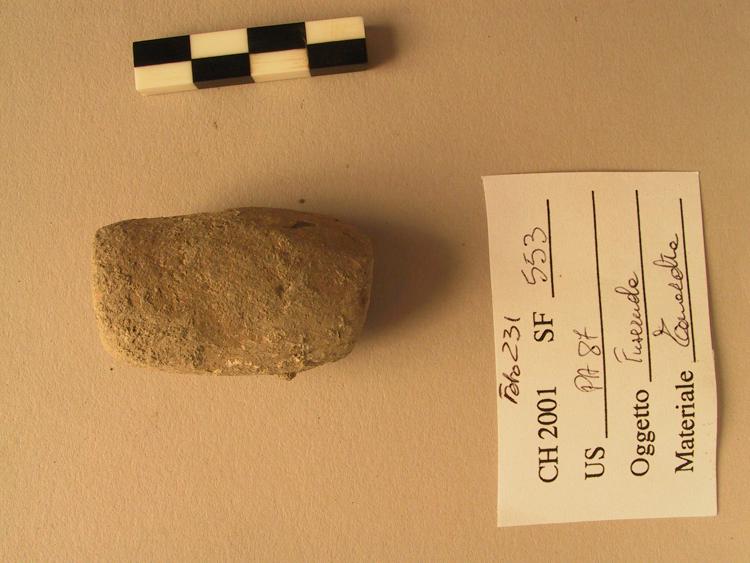 Foto 231
CH 2001 SF 553
US PA 87
Oggetto Fuseruola
Materiale Terracotta